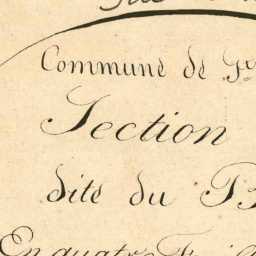 Commune de
Section
dite du
En quatre